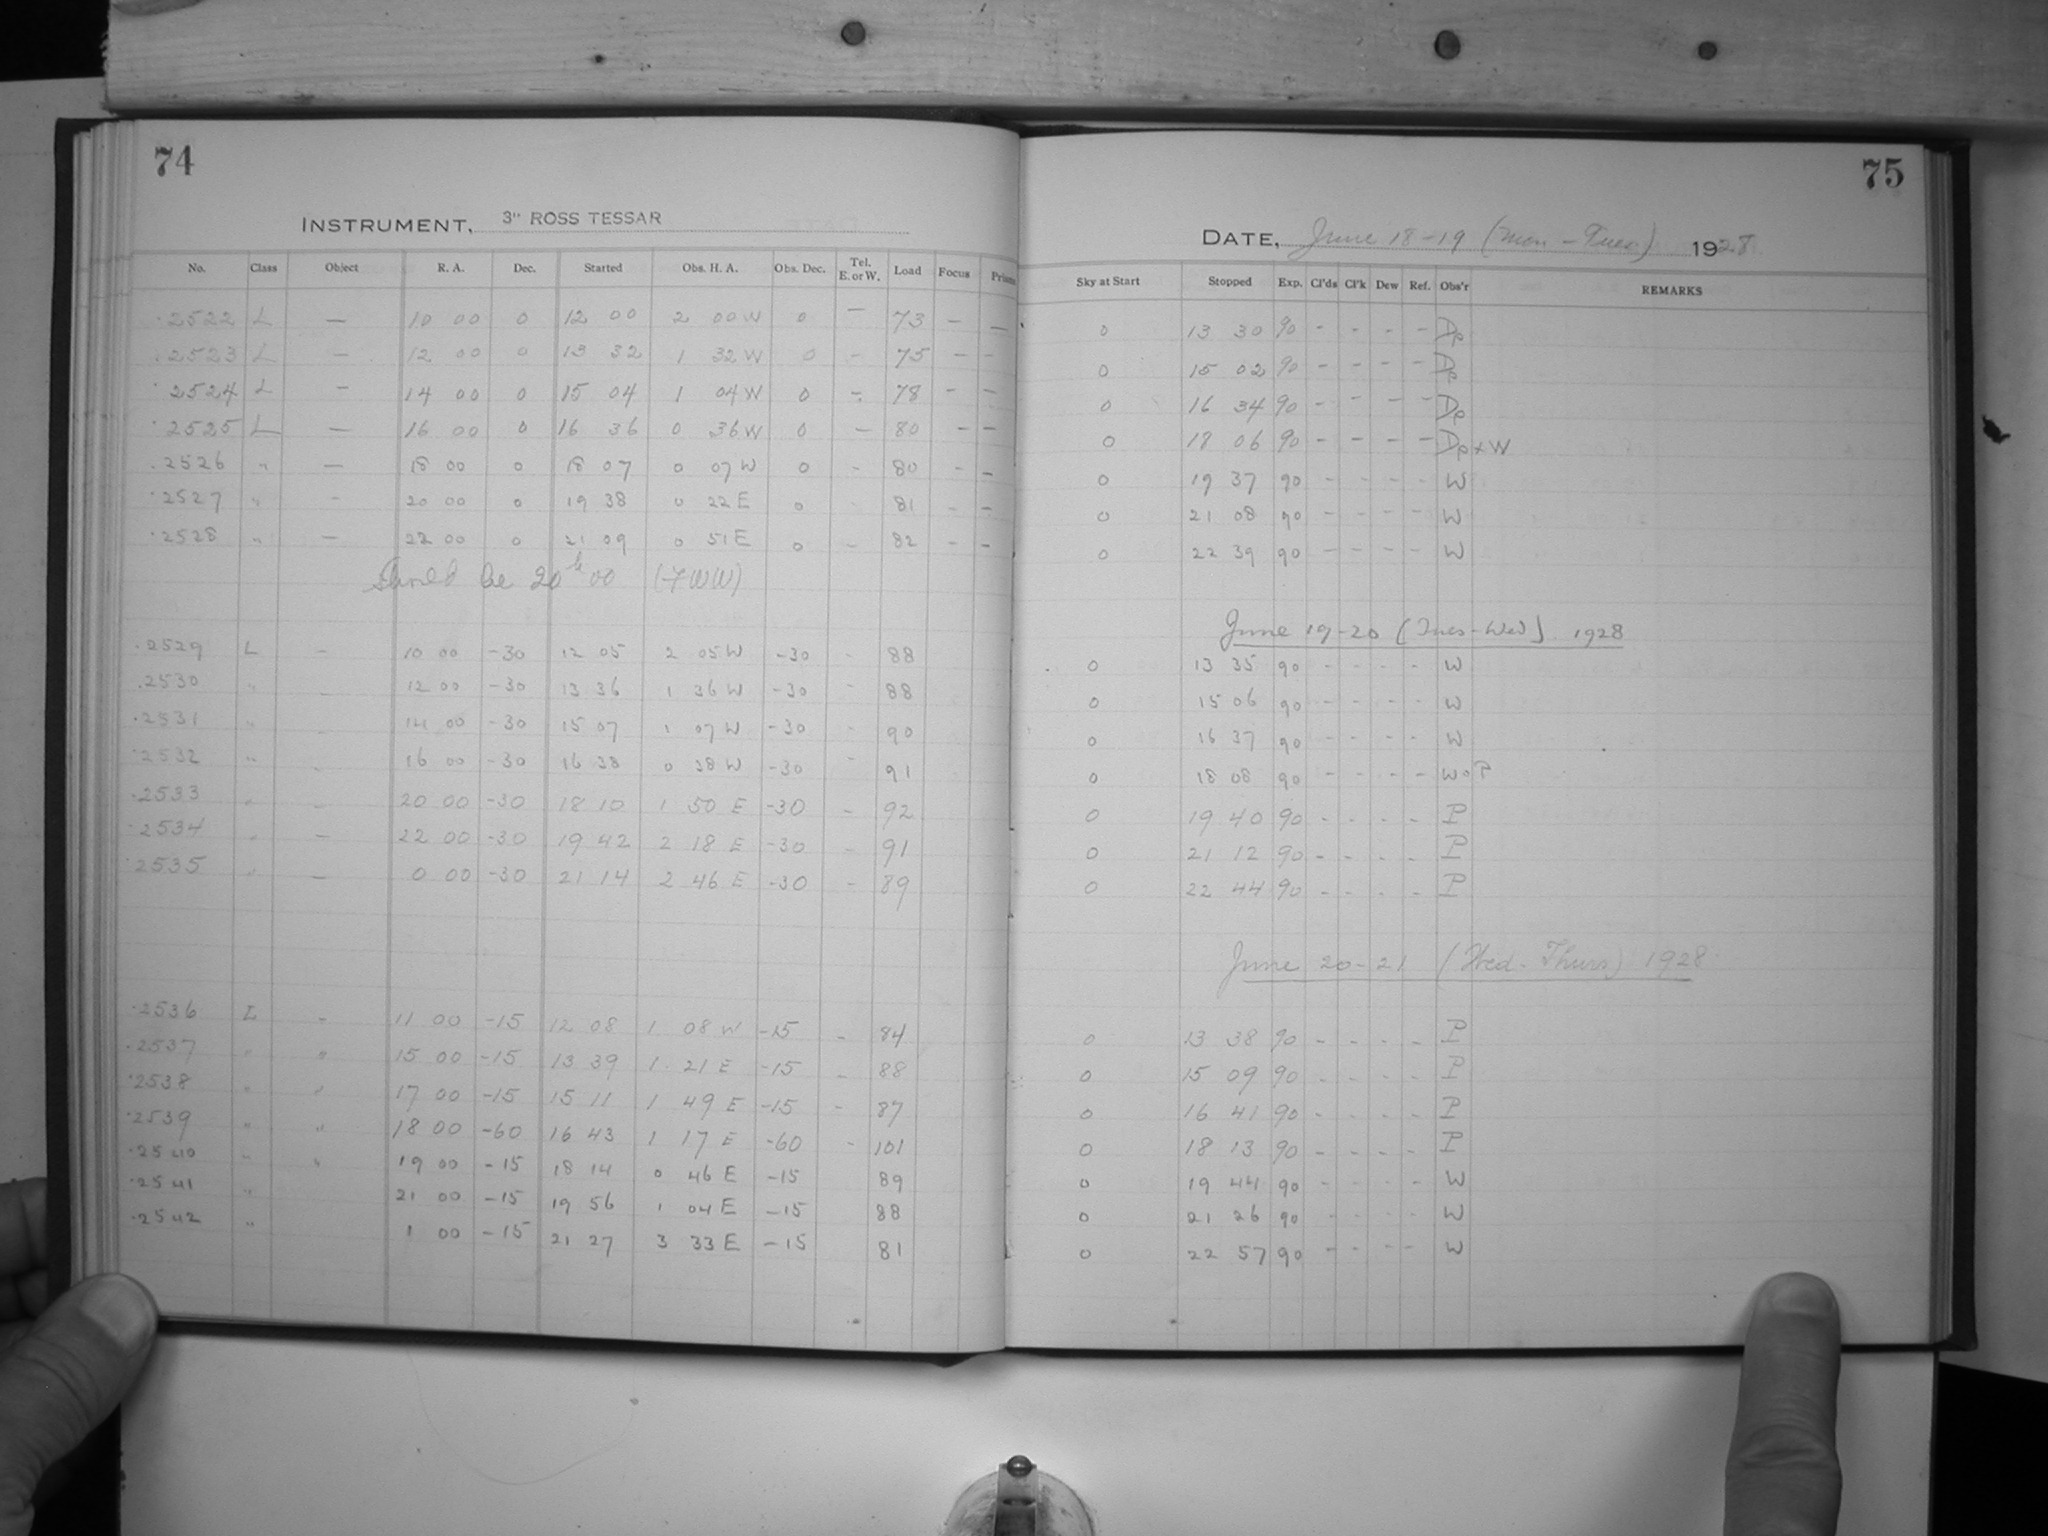 74
INSTRUMENT, 3" ROSS TESSAR
No. Class Object R. A. Dec. Started Obs. H. A. Obs. Dec. Tel. E. or W. Load Focus Prism
.2522 L — 10 00 0 12 00 2 00 W 0 — 73 — —
.2523 L — 12 00 0 13 32 1 32 W 0 — 75 — —
.2524 L — 14 00 0 15 04 1 04 W 0 — 78 — —
.2525 L — 16 00 0 16 36 0 36 W 0 — 80 — —
.2526 " — 18 00 0 18 07 0 07 W 0 - 80 - —
.2527 " - 20 00 0 19 38 0 22 E 0 81 - —
.2528 " — 22 00 0 21 09 0 51 E 0 - 82 - -
should be 20h 00
.2529 L - 10 00 -30 12 05 2 05 W -30 - 88
.2530 " - 12 00 -30 13 36 1 36 W -30 - 88
.2531 " - 14 00 -30 15 07 1 07 W -30 - 90
.2532 " - 16 00 -30 16 38 0 38 W -30 - 91
.2533 " - 20 00 -30 18 10 1 50 E -30 - 92
.2534 " - 22 00 -30 19 42 2 18 E -30 - 91
.2535 " - 0 00 -30 21 14 2 46 E -30 - 89
.2536 L - 11 00 -15 12 08 1 08 W -15 - 84
.2537 " " 15 00 -15 13 39 1 21 E -15 - 88
.2538 " " 17 00 -15 15 11 1 49 E -15 - 87
.2539 " " 18 00 -60 16 43 1 17 E -60 - 101
.2540 " " 19 00 -15 18 14 0 46 E -15 89
.2541 " 21 00 -15 19 56 1 04 E -15 88
.2542 " 1 00 -15 21 27 3 33 E -15 81
75
DATE, June 18-19 (Mon - Tues) 1928
Sky at Start Stopped Exp. Cl'ds Cl'k Dew Ref. Obs'r REMARKS
0 13 30 90 - - - - Dp
0 15 02 90 - - - - Dp
0 16 34 90 - - - - Dp
0 18 06 90 - - - - Dp + W
0 19 37 90 - - - - W
0 21 08 90 - - - - W
0 22 39 90 - - - - W
June 19-20 (Tues-Wed) 1928
0 13 35 90 - - - - W
0 15 06 90 - - - - W
0 16 37 90 - - - - W
0 18 08 90 - - - - W
0 19 40 90 - - - - P
0 21 12 90 - - - - P
0 22 44 90 - - - - P
June 20-21 (Wed-Thurs) 1928
0 13 38 90 - - - - P
0 15 09 90 - - - - P
0 16 41 90 - - - - P
0 18 13 90 - - - - P
0 19 44 90 - - - - W
0 21 26 90 - - - - W
0 22 57 90 - - - - W